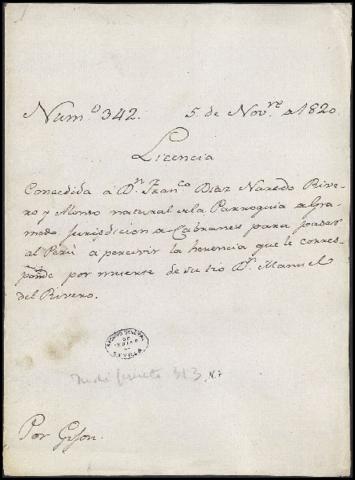 Num.º 342. 5 de Nov.re de 1820
Licencia
Concedida á D.n Fran.co Diaz Naredo Rive-
ro y Alonso natural de la Parroquia de Gra-
medo Jurisdicion de Cabranes para pasar
al Perú a percivir la herencia que le corres-
ponde por muerte de su tio D.n Manuel
del Rivero.
ARCHIVO GENERAL
DE
INDIAS
SEVILLA
313, N.7
Por Gijon.